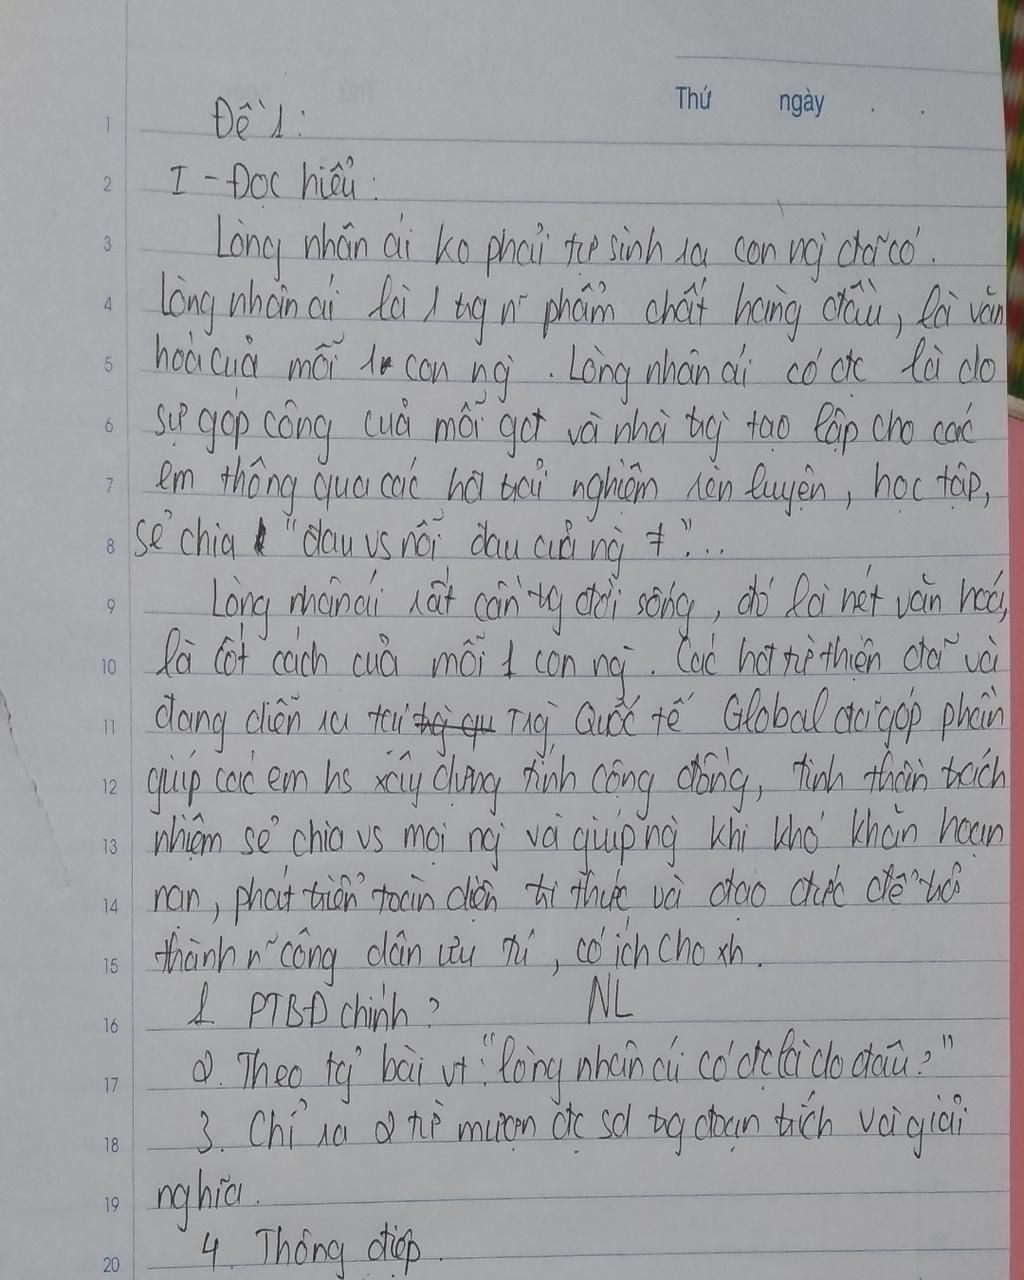 Thứ ngày . .
1 Đề 1 :
2 I - Đọc hiểu :
3 Lòng nhân ái ko phải tự sinh ra con ng` đã có .
4 Lòng nhân ái là 1 trg n~ phẩm chất hàng đầu, là văn
5 hoá của mỗi 1 con ng` . Lòng nhân ái có đc là do
6 sự góp công của mỗi gđ và nhà trg` tạo lập cho các
7 em thông qua các hđ trải nghiệm rèn luyện , học tập,
8 sẻ chia " đau vs nỗi đau của ng` ≠ "...
9 Lòng nhân ái rất cần trg đời sống , đó là nét văn hoá,
10 là cốt cách của mỗi 1 con ng` . Các hđ từ thiện đã và
11 đang diễn ra tại Trg` Quốc tế Global đã góp phần
12 giúp các em hs xây dựng tính cộng đồng, tinh thần trách
13 nhiệm sẻ chia vs mọi ng` và giúp ng` khi khó khăn hoạn
14 nạn , phát triển toàn diện tri thức và đạo đức để trở
15 thành n~ công dân ưu tú , có ích cho xh .
16 1 PTBĐ chính ? NL
17 2. Theo tg' bài vt : "lòng nhân ái có đc là do đâu ? "
18 3. Chỉ ra 2 từ mượn đc sd trg đoạn trích và giải
19 nghĩa .
20 4. Thông điệp .